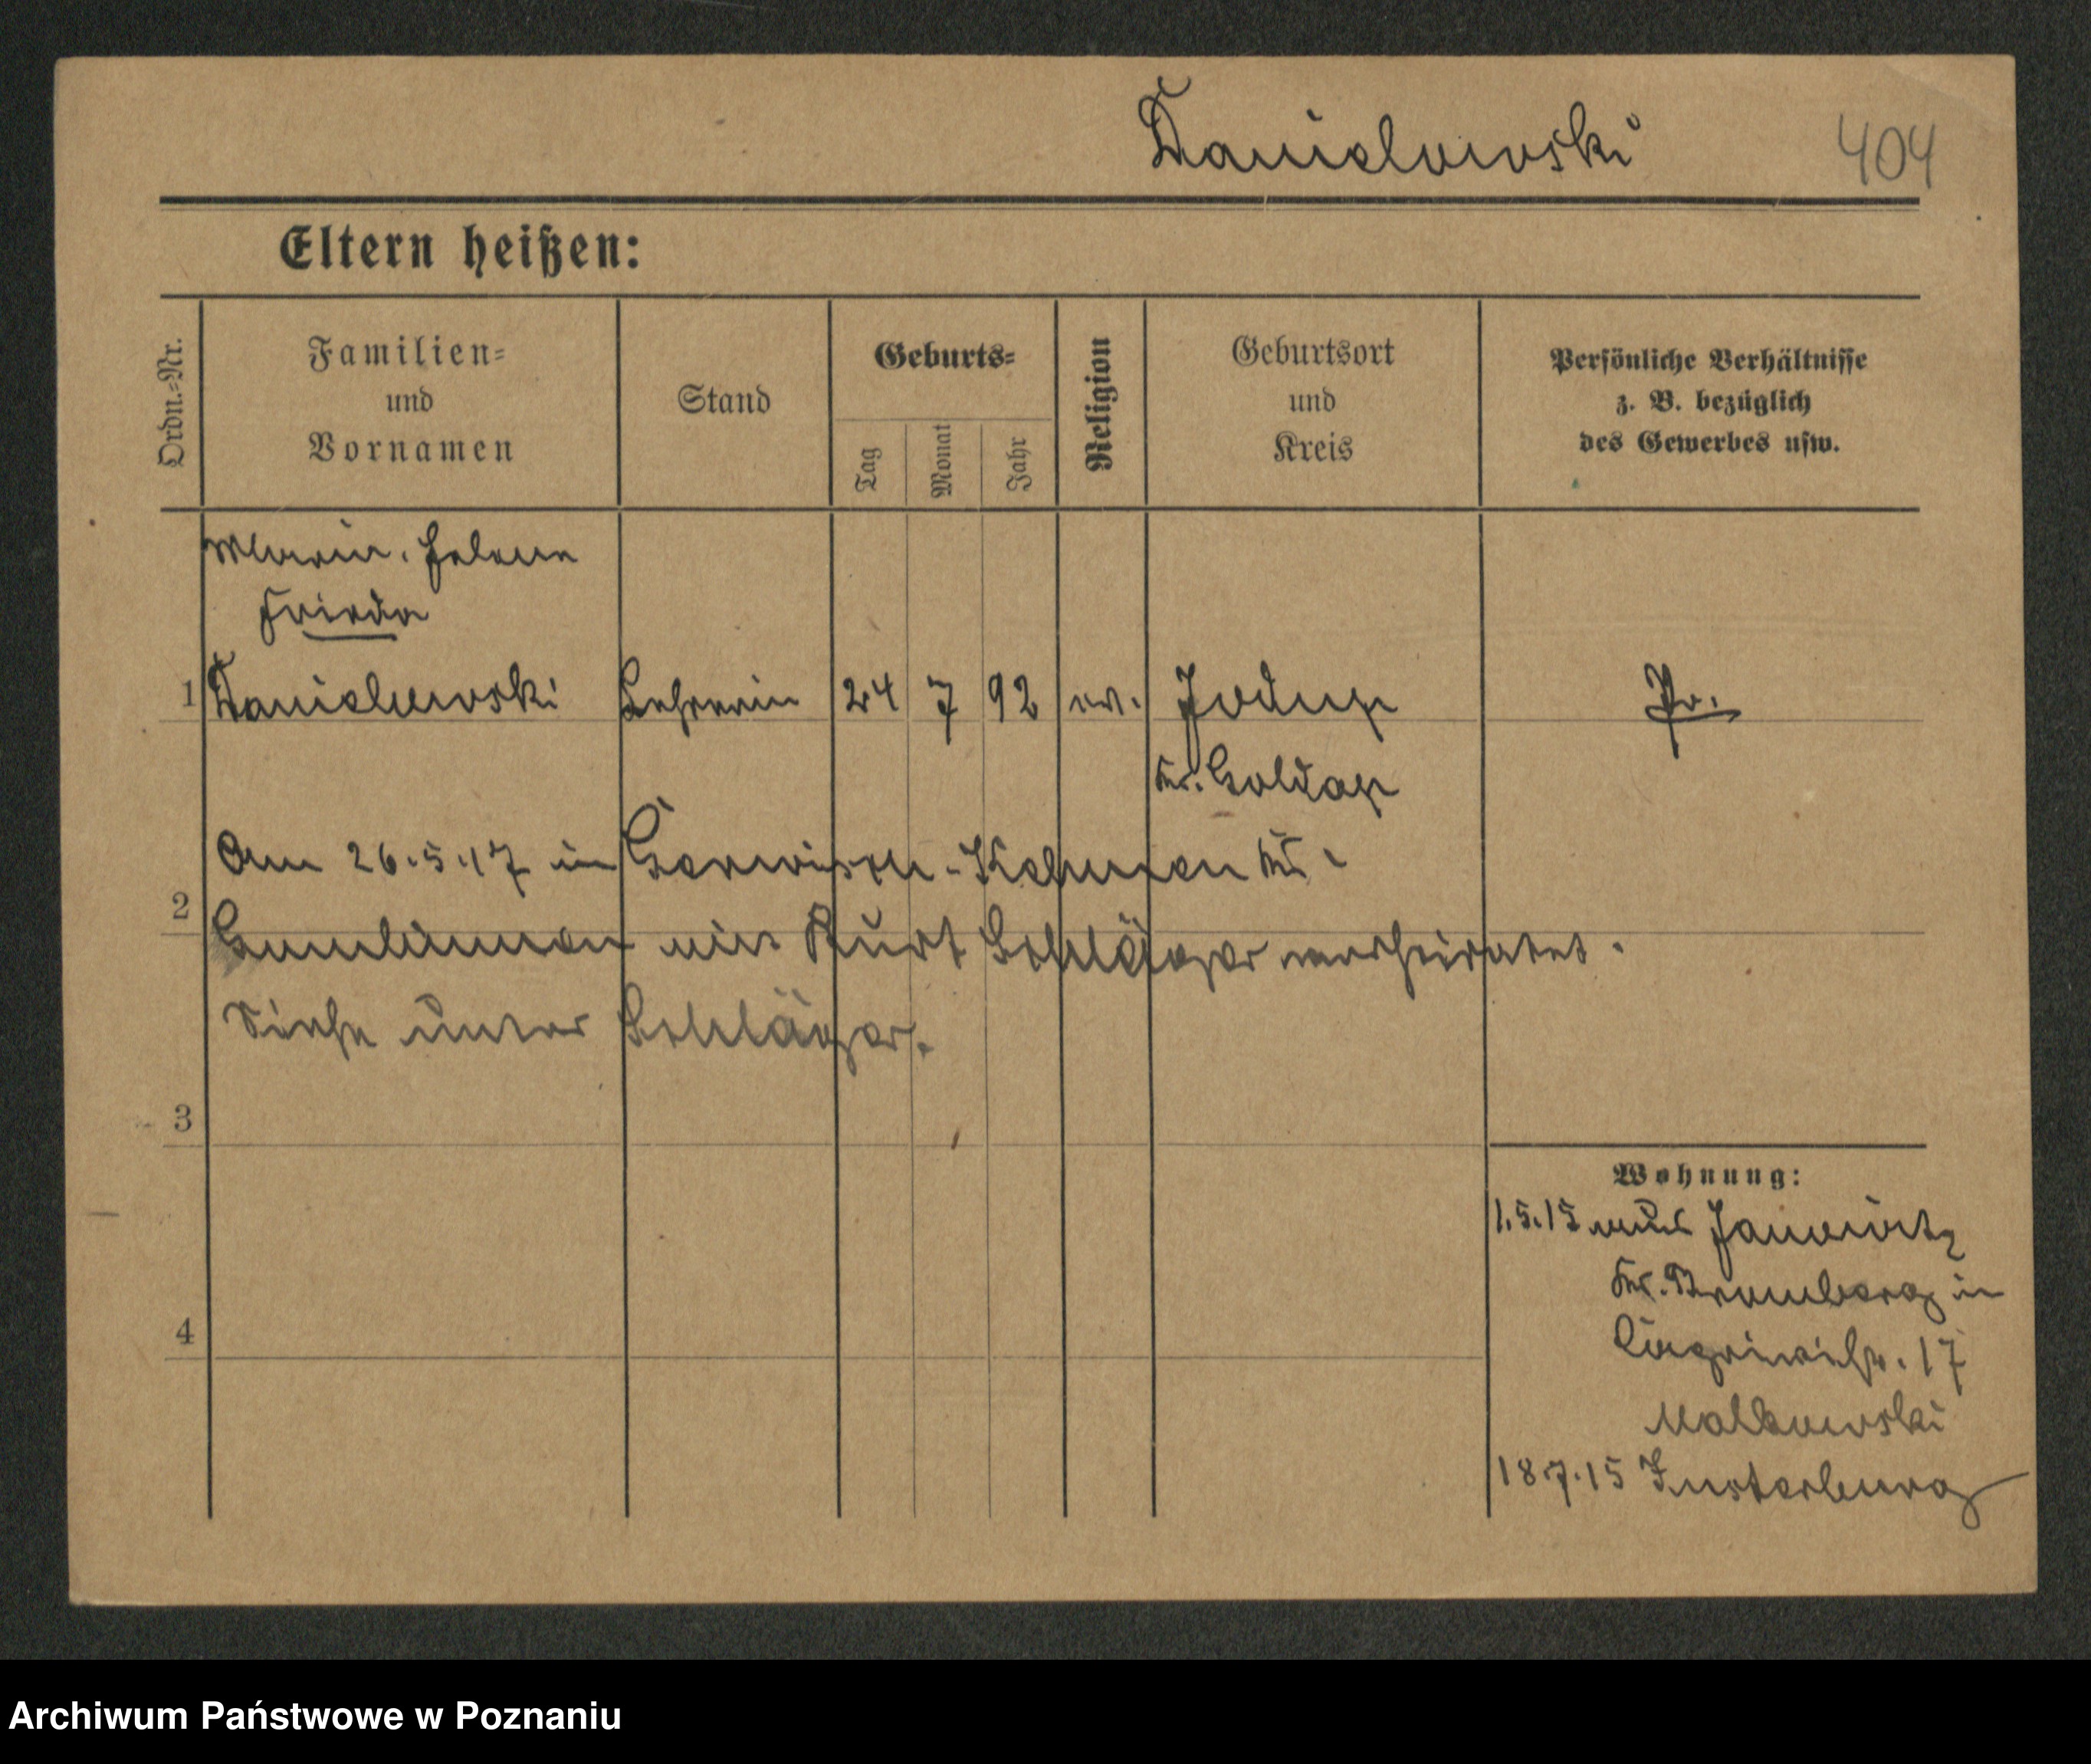 Danielowski 404
Eltern heißen:
Ordn.-Nr.
Familien-
und
Vornamen
Stand
Geburts-
Tag
Monat
Jahr
Religion
Geburtsort
und
Kreis
Persönliche Verhältnisse
z. B. bezüglich
des Gewerbes usw.
Marie. Helene
Frieda
1 Danielowski Lehrerin 24 7 92 ev. Jodup Pr.
Kr. Goldap
Am 26.5.17 in
2 Gumbinnen mit Kurt Schläger verheiratet.
Siehe unter Schläger.
3
4
Wohnung:
1.5.15 aus Janowitz
Kr. Bromberg in
17
Malkowski
18.7.15 Insterburg
Archiwum Państwowe w Poznaniu